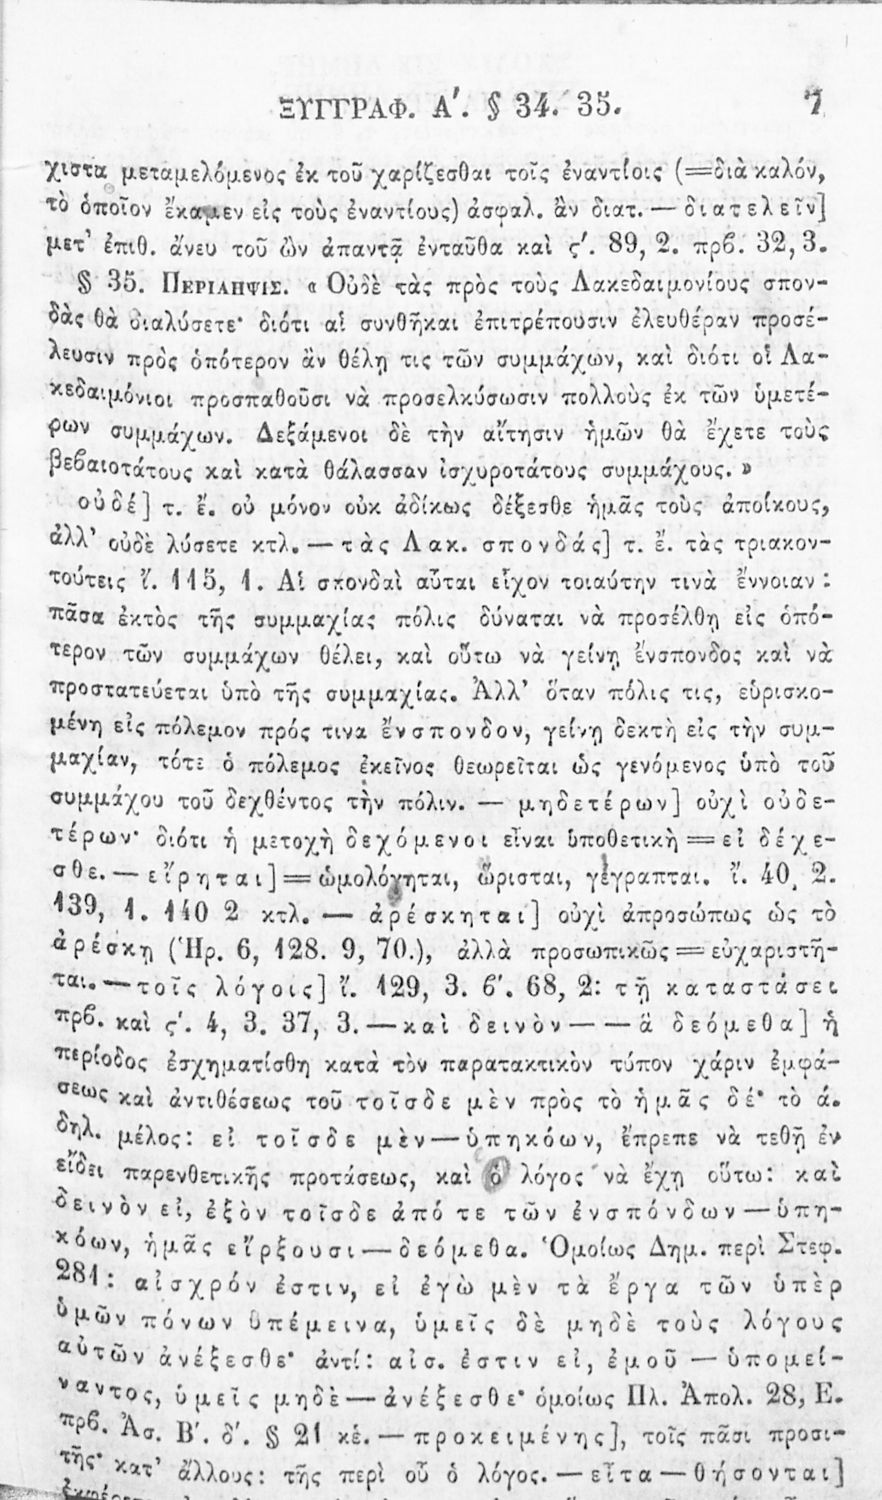 ΞΥΓΓΡΑΦ. Α'. § 34. 35. 7
χιστα μεταμελόμενος ἐκ τοῦ χαρίζεσθαι τοῖς ἐναντίοις (=διὰ καλόν,
τὸ ὁποῖον ἔκαμεν εἰς τοὺς ἐναντίους) ἀσφαλ. ἂν διατ. — διατελεῖν]
μετ' ἐπιθ. ἄνευ τοῦ ὢν ἀπαντᾷ ἐνταῦθα καὶ ς'. 89, 2. πρϐ. 32, 3.
§ 35. ΠΕΡΙΛΗΨΙΣ. « Οὐδὲ τὰς πρὸς τοὺς Λακεδαιμονίους σπον-
δὰς θὰ διαλύσετε· διότι αἱ συνθῆκαι ἐπιτρέπουσιν ἐλευθέραν προσέ-
λευσιν πρὸς ὁπότερον ἂν θέλῃ τις τῶν συμμάχων, καὶ διότι οἱ Λα-
κεδαιμόνιοι προσπαθοῦσι νὰ προσελκύσωσιν πολλοὺς ἐκ τῶν ὑμετέ-
ρων συμμάχων. Δεξάμενοι δὲ τὴν αἴτησιν ἡμῶν θὰ ἔχετε τοὺς
βεϐαιοτάτους καὶ κατὰ θάλασσαν ἰσχυροτάτους συμμάχους. »
οὐδέ] τ. ἔ. οὐ μόνον οὐκ ἀδίκως δέξεσθε ἡμᾶς τοὺς ἀποίκους,
ἀλλ' οὐδὲ λύσετε κτλ. — τὰς Λακ. σπονδάς] τ. ἔ. τὰς τριακον-
τούτεις ἴ. 115, 1. Αἱ σπονδαὶ αὗται εἶχον τοιαύτην τινὰ ἔννοιαν :
πᾶσα ἐκτὸς τῆς συμμαχίας πόλις δύναται νὰ προσέλθῃ εἰς ὁπό-
τερον τῶν συμμάχων θέλει, καὶ οὕτω νὰ γείνῃ ἔνσπονδος καὶ νὰ
προστατεύεται ὑπὸ τῆς συμμαχίας. Ἀλλ' ὅταν πόλις τις, εὑρισκο-
μένη εἰς πόλεμον πρός τινα ἔνσπονδον, γείνῃ δεκτὴ εἰς τὴν συμ-
μαχίαν, τότε ὁ πόλεμος ἐκεῖνος θεωρεῖται ὡς γενόμενος ὑπὸ τοῦ
συμμάχου τοῦ δεχθέντος τὴν πόλιν. — μηδετέρων] οὐχὶ οὐδε-
τέρων· διότι ἡ μετοχὴ δεχόμενοι εἶναι ὑποθετικὴ = εἰ δέχε-
σθε. — εἴρηται] = ὡμολόγηται, ὥρισται, γέγραπται. ἴ. 40, 2.
139, 1. 140 2 κτλ. — ἀρέσκηται] οὐχὶ ἀπροσώπως ὡς τὸ
ἀρέσκῃ (Ἡρ. 6, 128. 9, 70.), ἀλλὰ προσωπικῶς = εὐχαριστῆ-
ται. — τοῖς λόγοις] ἴ. 129, 3. ϐ'. 68, 2: τῇ καταστάσει
πρϐ. καὶ ς'. 4, 3. 37, 3. — καὶ δεινὸν — — ἃ δεόμεθα] ἡ
περίοδος ἐσχηματίσθη κατὰ τὸν παρατακτικὸν τύπον χάριν ἐμφά-
σεως καὶ ἀντιθέσεως τοῦ τοῖσδε μὲν πρὸς τὸ ἡμᾶς δέ· τὸ ά.
δηλ. μέλος: εἰ τοῖσδε μὲν — ὑπηκόων, ἔπρεπε νὰ τεθῇ ἐν
εἴδει παρενθετικῆς προτάσεως, καὶ ὁ λόγος νὰ ἔχῃ οὕτω: καὶ
δεινὸν εἰ, ἐξὸν τοῖσδε ἀπό τε τῶν ἐνσπόνδων — ὑπη-
κόων, ἡμᾶς εἴρξουσι — δεόμεθα. Ὁμοίως Δημ. περὶ Στεφ.
281: αἰσχρόν ἐστιν, εἰ ἐγὼ μὲν τὰ ἔργα τῶν ὑπὲρ
ὑμῶν πόνων ὑπέμεινα, ὑμεῖς δὲ μηδὲ τοὺς λόγους
αὐτῶν ἀνέξεσθε· ἀντί: αἰσ. ἐστιν εἰ, ἐμοῦ — ὑπομεί-
ναντος, ὑμεῖς μηδὲ — ἀνέξεσθε· ὁμοίως Πλ. Ἀπολ. 28, Ε.
πρϐ. Ἀσ. Β'. δ'. § 21 κέ. — προκειμένης], τοῖς πᾶσι προσι-
τῆς· κατ' ἄλλους: τῆς περὶ οὗ ὁ λόγος. — εἶτα — θήσονται]